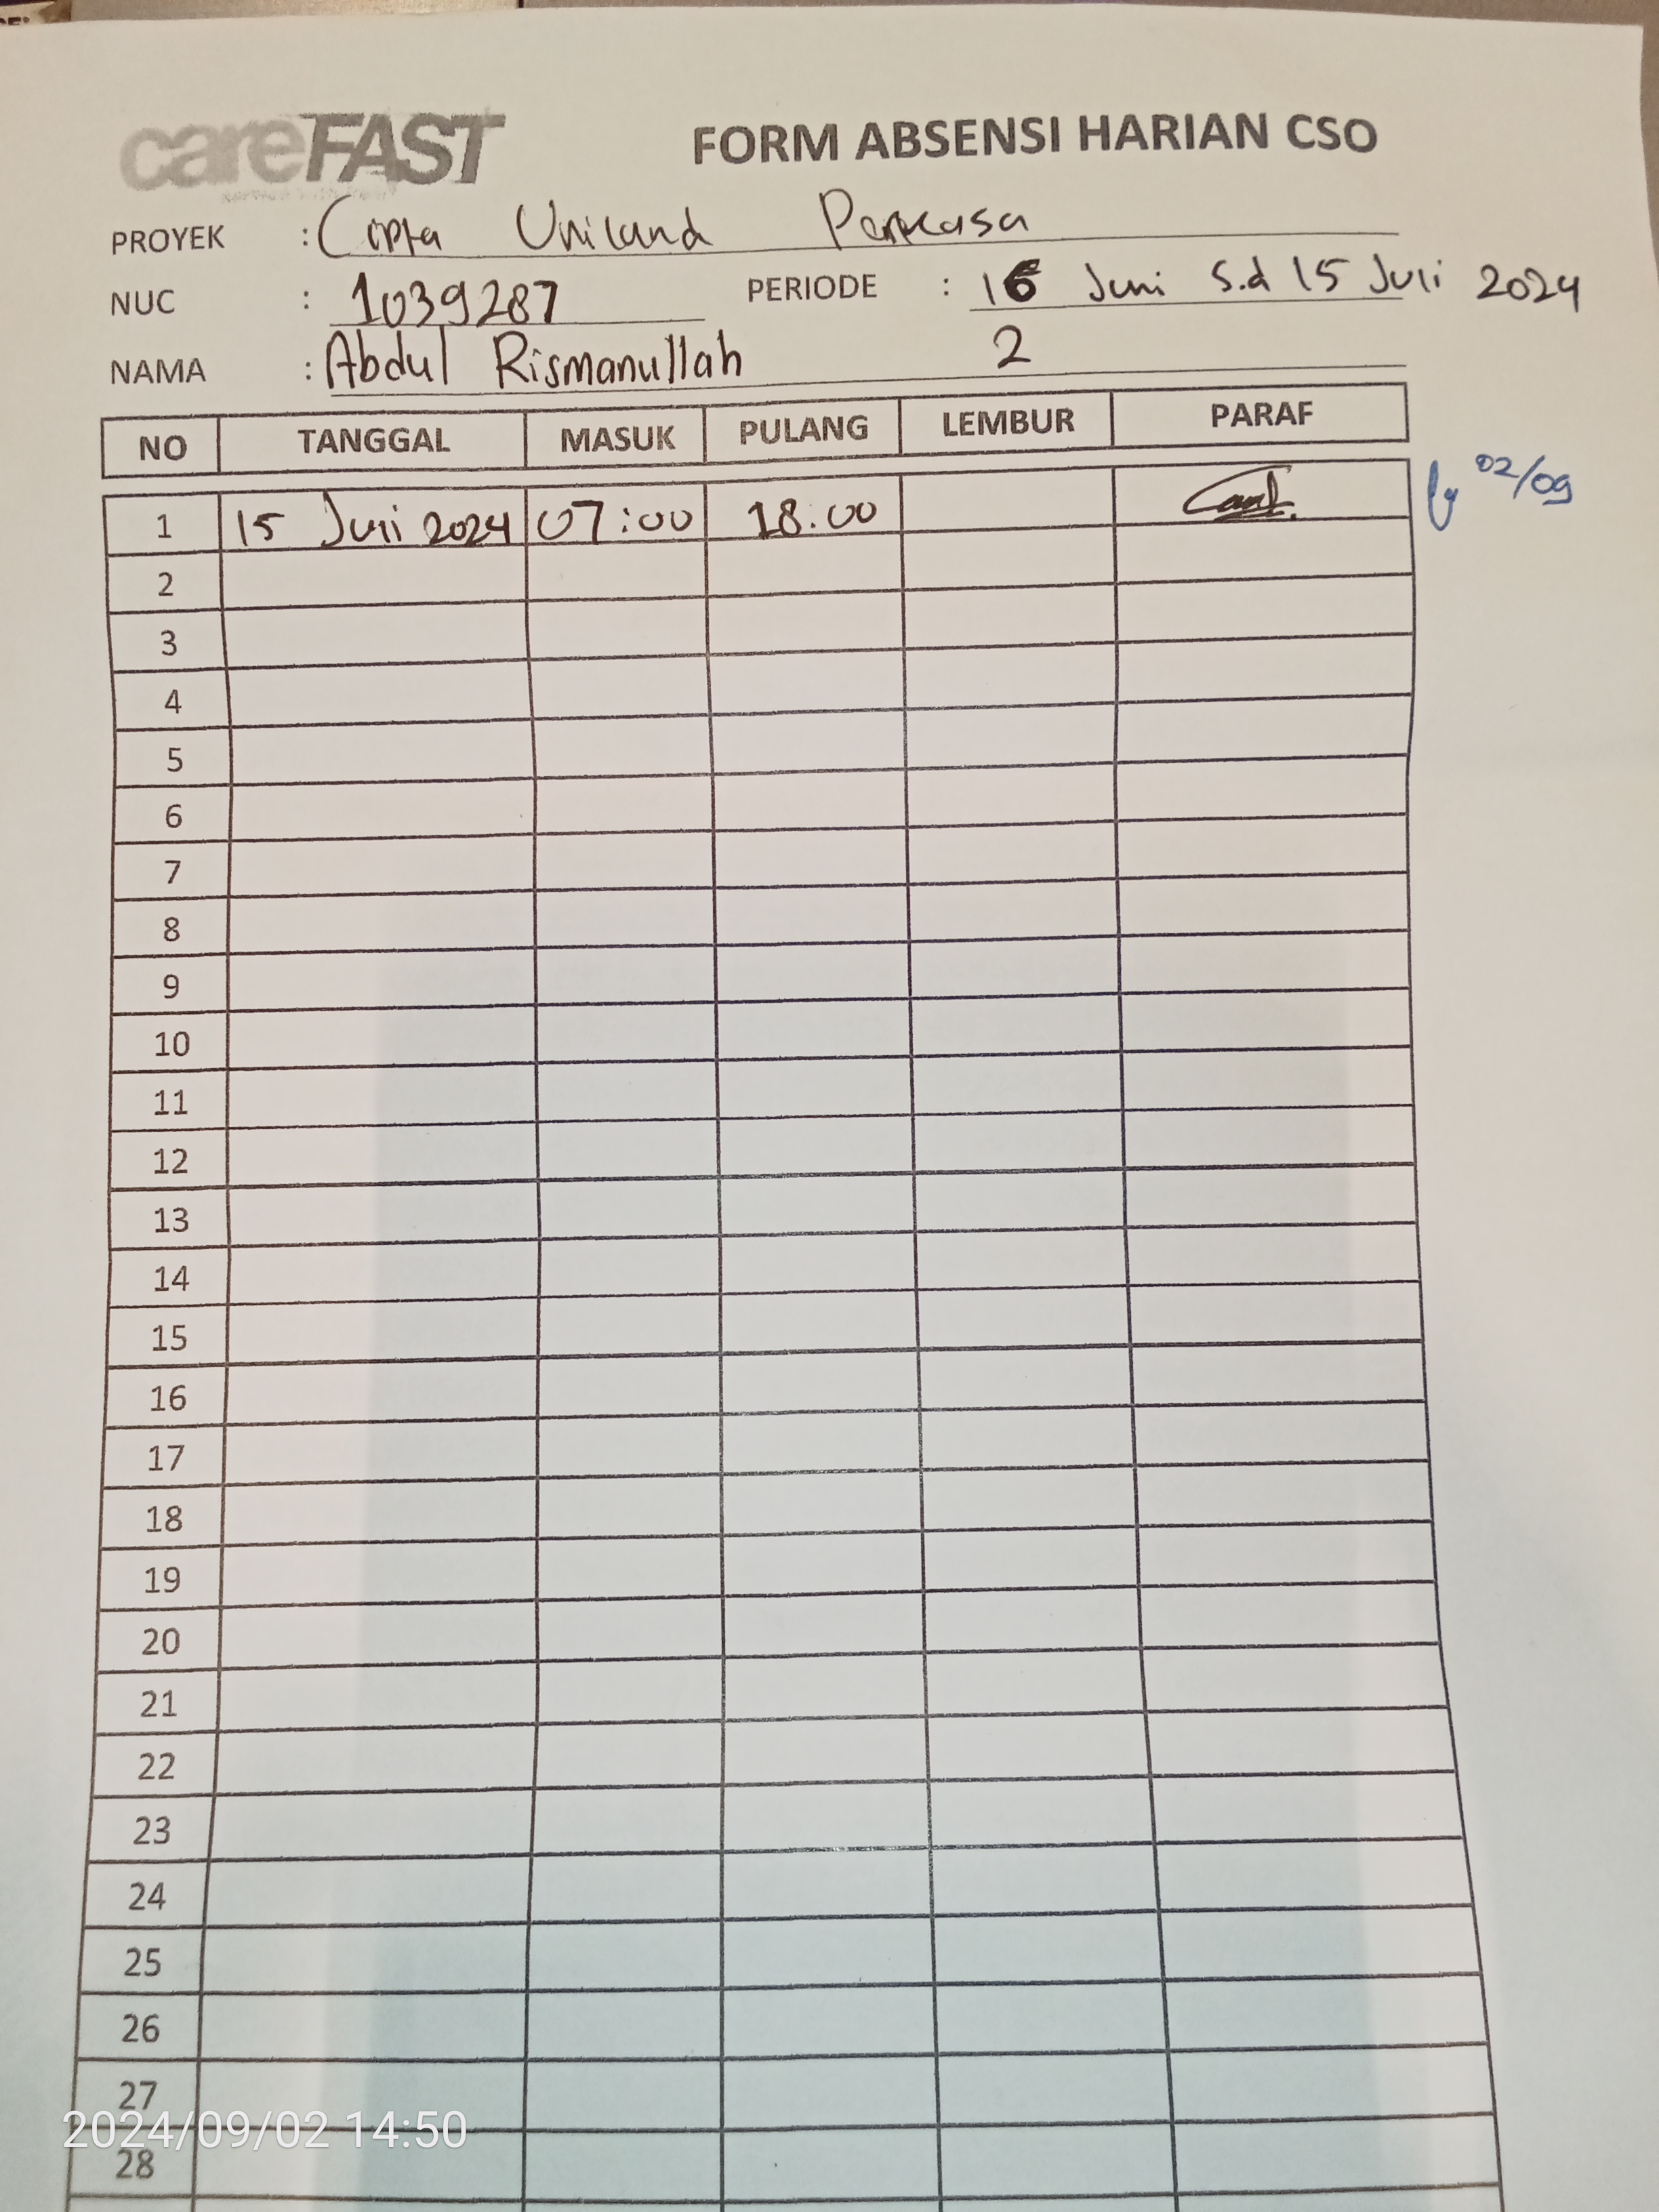 careFAST
FORM ABSENSI HARIAN CSO
PROYEK : Cipta Uniland Perkasa
NUC : 1039287 PERIODE : 16 Juni s.d 15 Juli 2024
NAMA : Abdul Rismanullah 2
NO TANGGAL MASUK PULANG LEMBUR PARAF
1 15 Juli 2024 07:00 18:00
02/09
2
3
4
5
6
7
8
9
10
11
12
13
14
15
16
17
18
19
20
21
22
23
24
25
26
27
2024/09/02 14:50
28